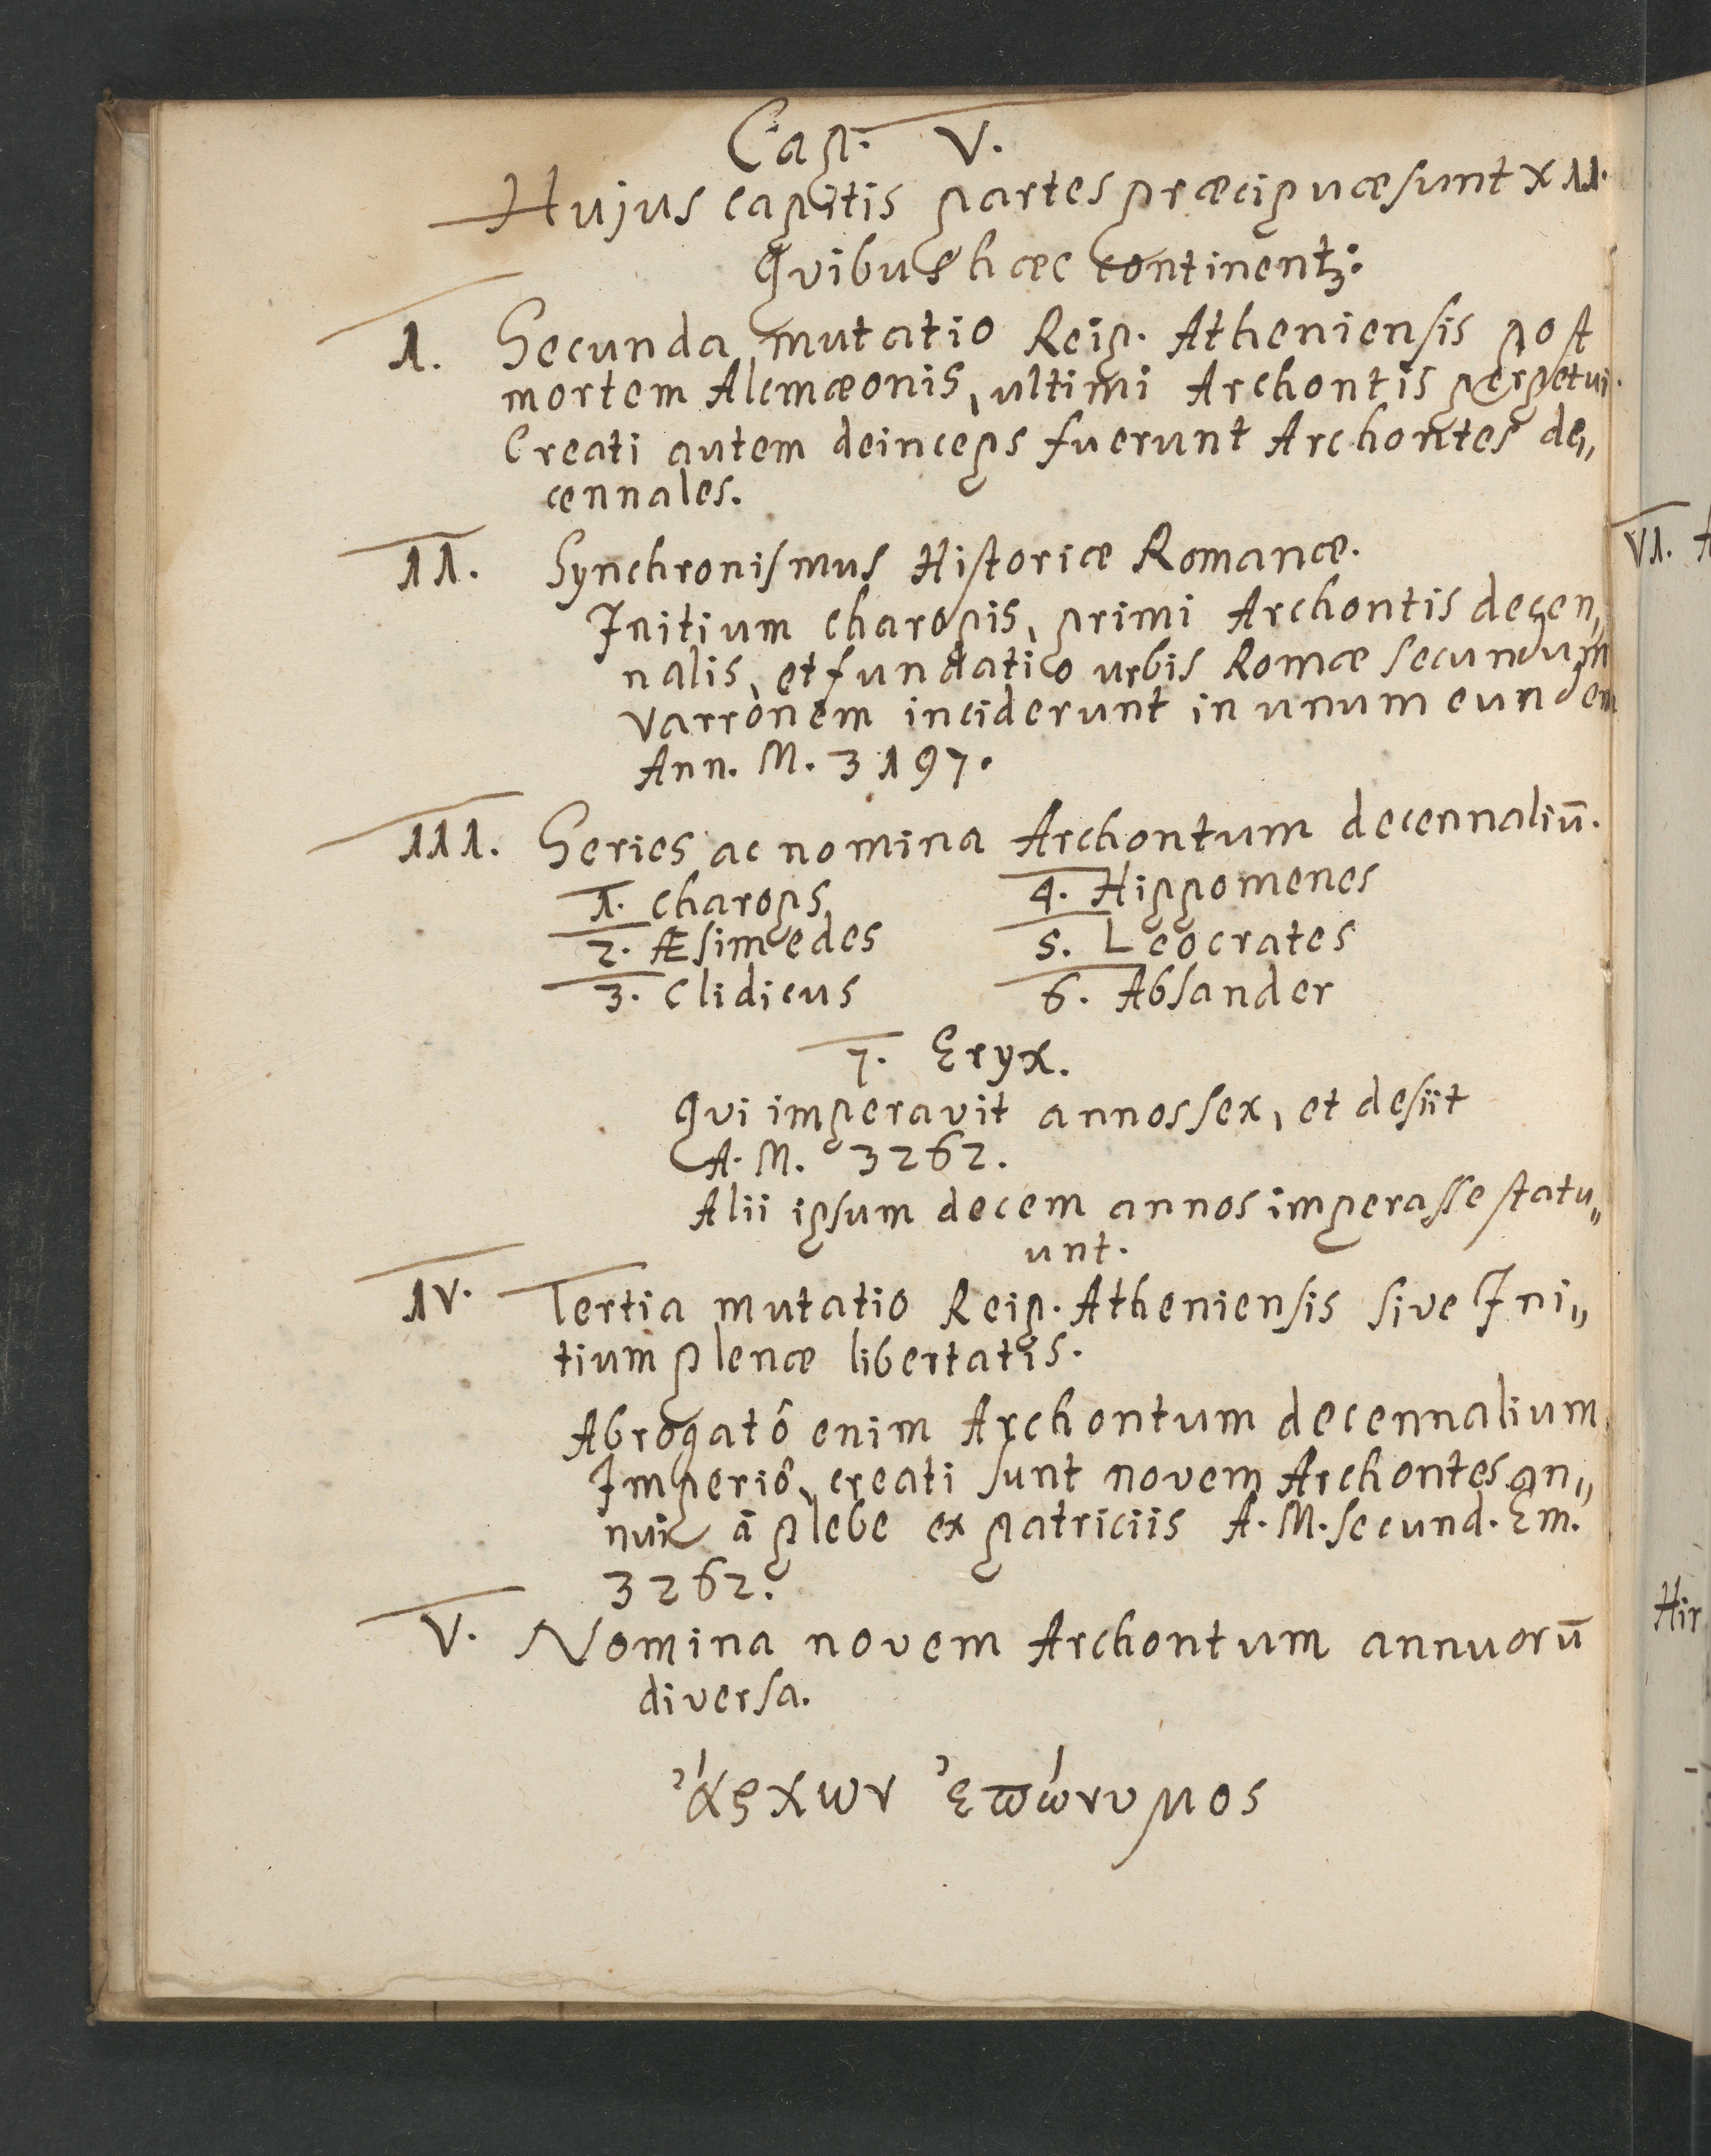 Cap. V.
Hujus capitis partes præcipuæ sunt XII.
Qvibus hæc continentꝫ:
I. Secunda mutatio Reip. Atheniensis post
mortem Alcmæonis, ultimi Archontis perpetui.
Creati autem deinceps fuerunt Archontes de„
cennales.
II. Synchronismus Historiæ Romanæ.
Initium Charopis, primi Archontis decen„
nalis, et fundatio urbis Romæ secundum
Varronem inciderunt in unum eundem
Ann. M. 3197.
III. Series ac nomina Archontum decennaliū.
1. Charops 4. Hippomenes
2. Æsimedes 5. Leocrates
3. Clidicus 6. Absander
7. Eryx.
Qvi imperavit annos sex, et desiit
A. M. 3262.
Alii ipsum decem annos imperasse statu„
unt.
IV. Tertia mutatio Reip. Atheniensis sive Ini„
tium plenæ libertatis.
Abrogatô enim Archontum decennalium
Imperiô, creati sunt novem Archontes an„
nui à plebe ex patriciis A. M. secund. Em.
3262.
V. Nomina novem Archontum annuorū
diversa.
ἄρχων ἐπώνυμος
VI.
Hir